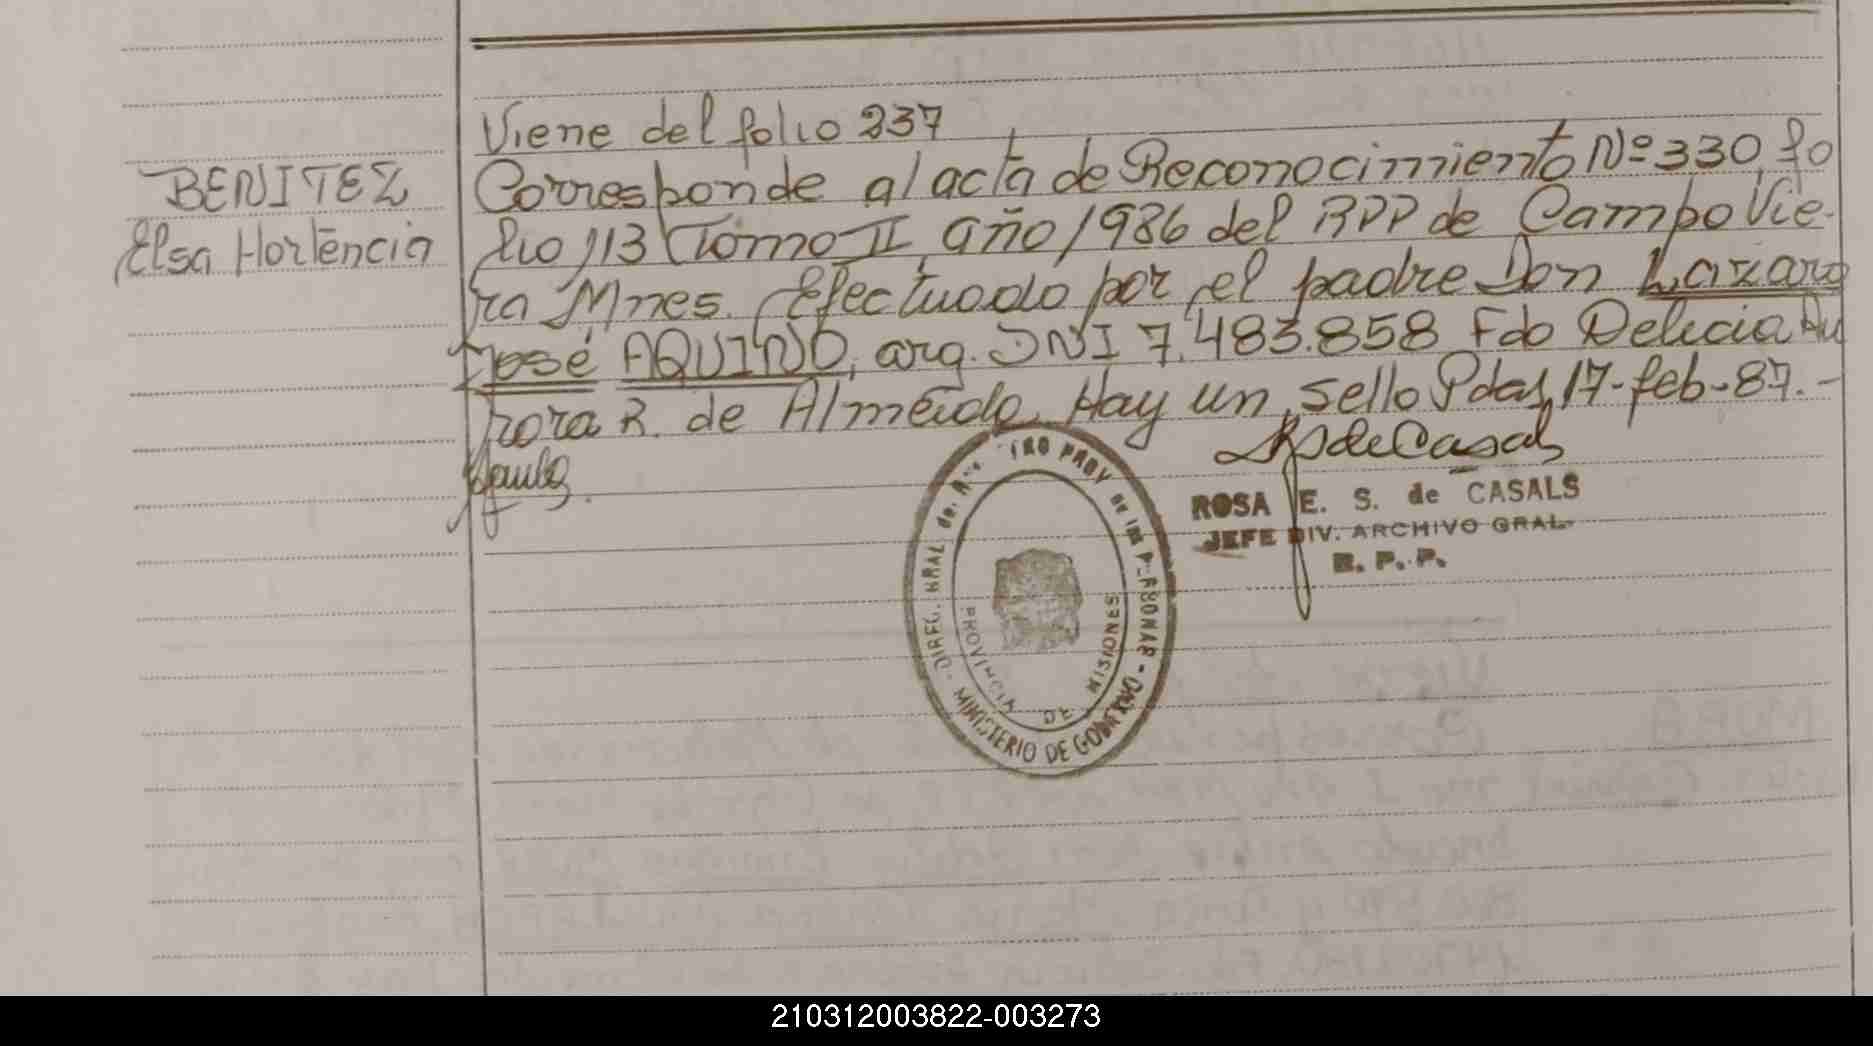 Viene del folio 237
BENITEZ
Elsa Hortencia
Corresponde al acta de Reconocimiento Nº 330, fo
lio 113 Tomo II, año 1986 del RPP de Campo Vie-
ra Mnes. Efectuado por el padre Don Lazaro
José AQUINO, arg. DNI 7.483.858 Fdo Delicia Au
rora R. de Almeida. Hay un sello Pdas, 17-feb-87.-
RS de Casals
ROSA E. S. de CASALS
JEFE DIV. ARCHIVO GRAL.
R. P. P.
DIREC. GRAL del PROV de las PERSONAS - MINISTERIO DE GOBIERNO
PROVINCIA DE MISIONES
210312003822-003273